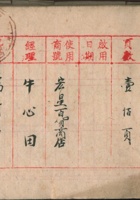 頁數
壹佰頁
啟用日期
使用商號
宏昱百貨商店
經理
牛心田